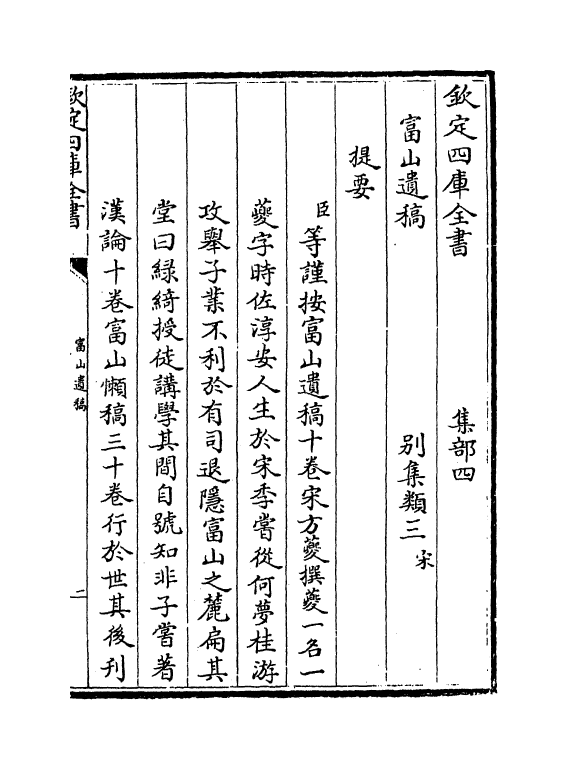 欽定四庫全書　集部四
富山遺稿　別集類三宋
提要
臣等謹按富山遺稿十卷宋方夔撰夔一名一
夔字時佐淳安人生於宋季嘗從何夢桂游
攻舉子業不利於有司退隱富山之麓扁其
堂曰緑綺授徒講學其間自號知非子嘗著
漢論十卷富山懶稿三十卷行於世其後刋
欽定四庫全書
富山遺稿